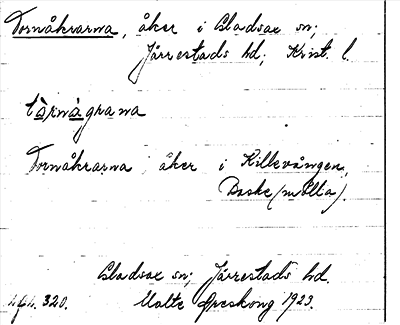 Tornåkrarna, åker i Gladsax sn;
Järrestads hd; Krist. l.
tàrnàgrana
Tornåkrarna, åker i Killevången,
Baske (mölla).
Gladsax sn; Järrestads hd.
320. Malte Areskong 1923.